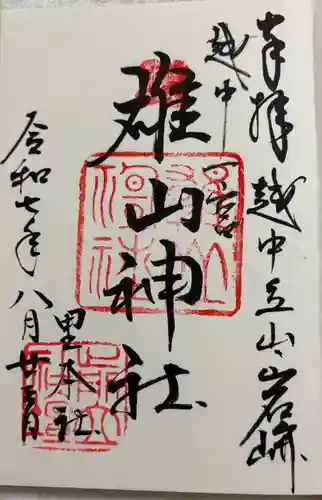 奉拝 越中立山岩峅
越中一宮
雄山神社
里本社
令和七年八月廿三日